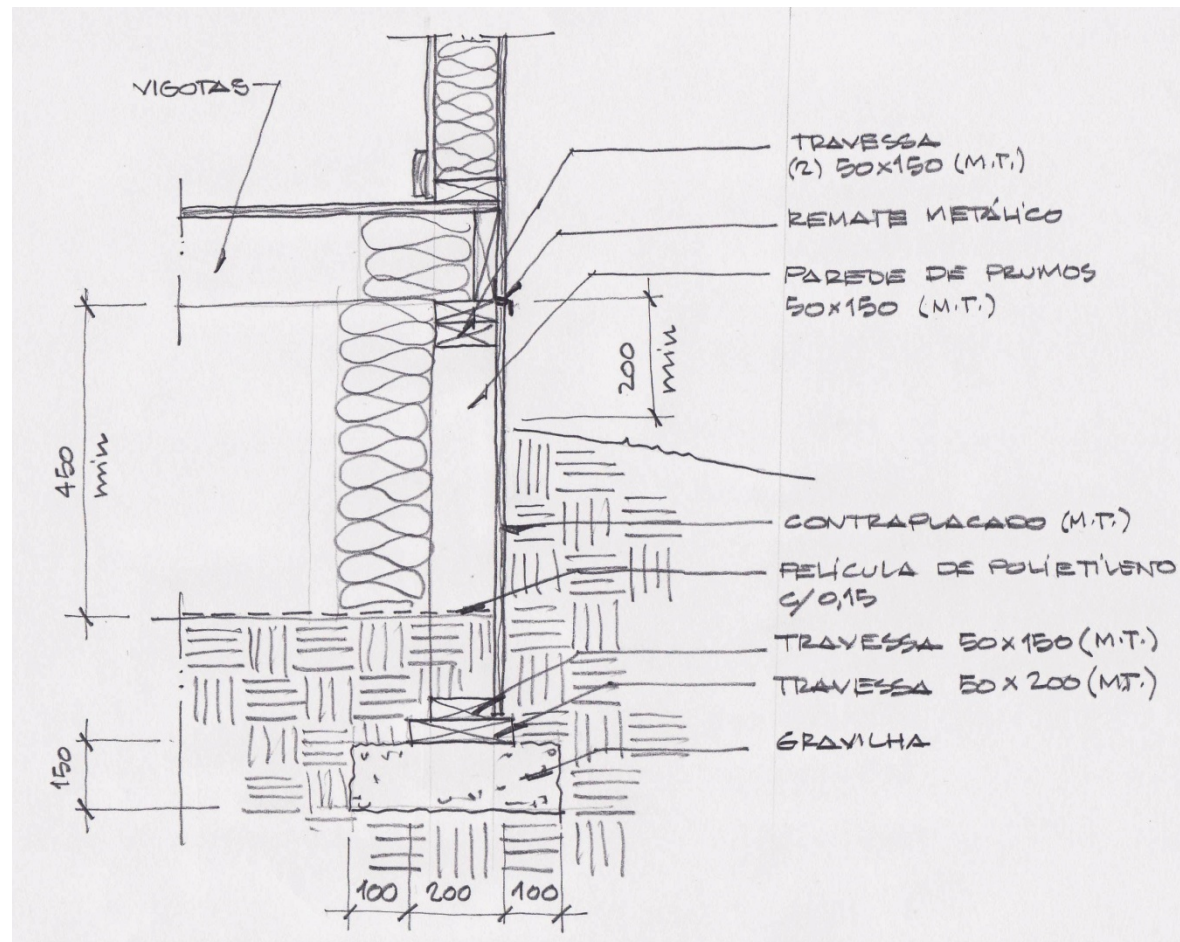 VIGOTAS
TRAVESSA
(2) 50x150 (M.T.)
REMATE METÁLICO
PAREDE DE PRUMOS
50x150 (M.T.)
200
min
450
min
CONTRAPLACADO (M.T.)
PELÍCULA DE POLIETILENO
c/ 0,15
TRAVESSA 50x150 (M.T.)
TRAVESSA 50x200 (M.T.)
GRAVILHA
150
100
200
100